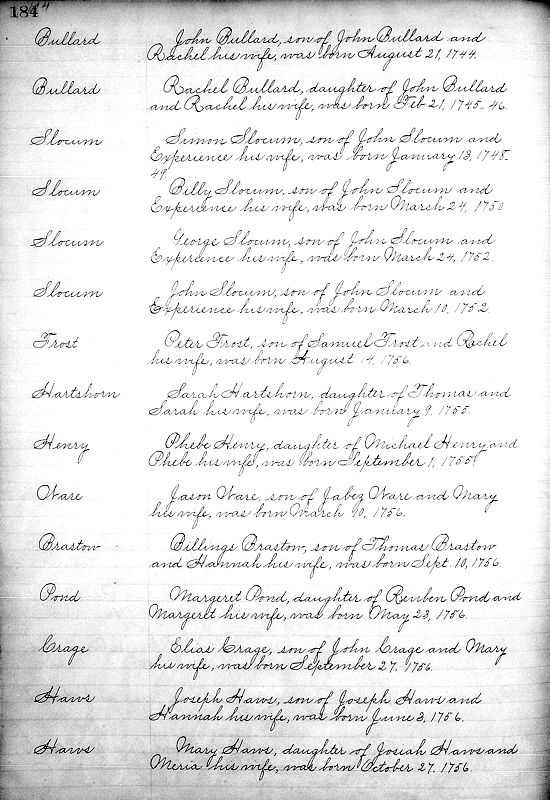 184
Bullard John Bullard, son of John Bullard and
Rachel his wife, was born August 21, 1744.
Bullard Rachel Bullard, daughter of John Bullard
and Rachel his wife, was born Feb 21, 1745-46.
Slocum Simon Slocum, son of John Slocum and
Experience his wife, was born January 13, 1748-
49.
Slocum Billy Slocum, son of John Slocum and
Experience his wife, was born March 24, 1750
Slocum George Slocum, son of John Slocum and
Experience his wife, was born March 24, 1752.
Slocum John Slocum, son of John Slocum and
Experience his wife, was born March 10, 1752.
Frost Peter Frost, son of Samuel Frost and Rachel
his wife, was born August 14, 1756.
Hartshorn Sarah Hartshorn, daughter of Thomas and
Sarah his wife, was born January 9, 1755.
Henry Phebe Henry, daughter of Michael Henry and
Phebe his wife, was born September 1, 1755.
Ware Jason Ware, son of Jabez Ware and Mary
his wife, was born March 10, 1756.
Brastow Billings Brastow, son of Thomas Brastow
and Hannah his wife, was born Sept. 10, 1756.
Pond Margeret Pond, daughter of Reuben Pond and
Margeret his wife, was born May 23, 1756.
Crage Elias Crage, son of John Crage and Mary
his wife, was born September 27, 1756.
Haws Joseph Haws, son of Joseph Haws and
Hannah his wife, was born June 3, 1756.
Haws Mary Haws, daughter of Josiah Haws and
Meria his wife, was born October 27, 1756.